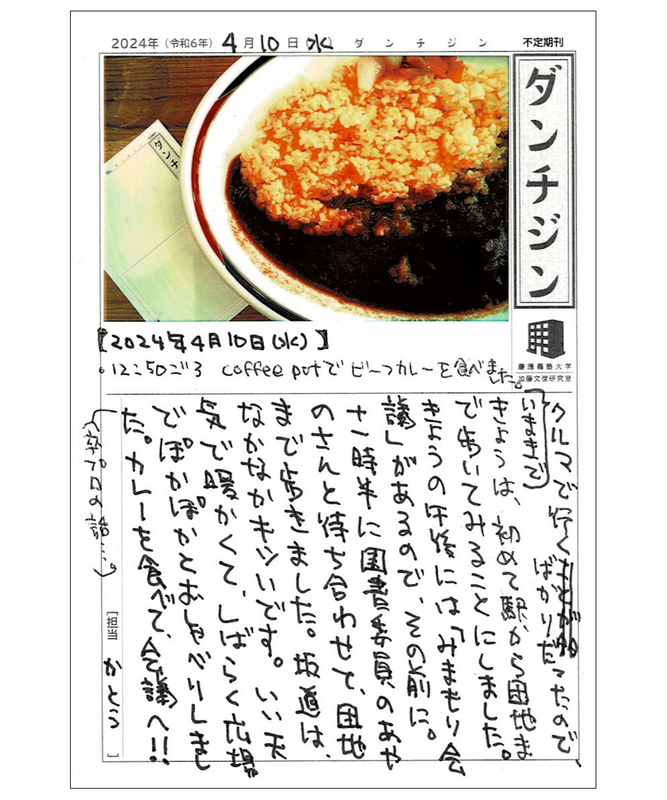 2024年（令和6年）4月10日 水 ダンチジン 不定期刊
ダンチ
ダンチジン
慶應義塾大学
加藤文俊研究室
【2024年4月10日(水)】
・12:50ごろ coffee potで ビーフカレーを食べました。
いままで
クルマで行くばかりだったので、
きょうは、初めて駅から団地ま
で歩いてみることにしました。
きょうの午後には「みまもり会
議」があるので、その前に。
十一時半に図書委員のあや
のさんと待ち合わせて、団地
まで歩きました。坂道は、
なかなかキツいです。いい天
気で暖かくて、しばらく広場
でぽかぽかとおしゃべりしまし
た。カレーを食べて、会議へ!!
(卒プロの話…。)
［担当 かとう］